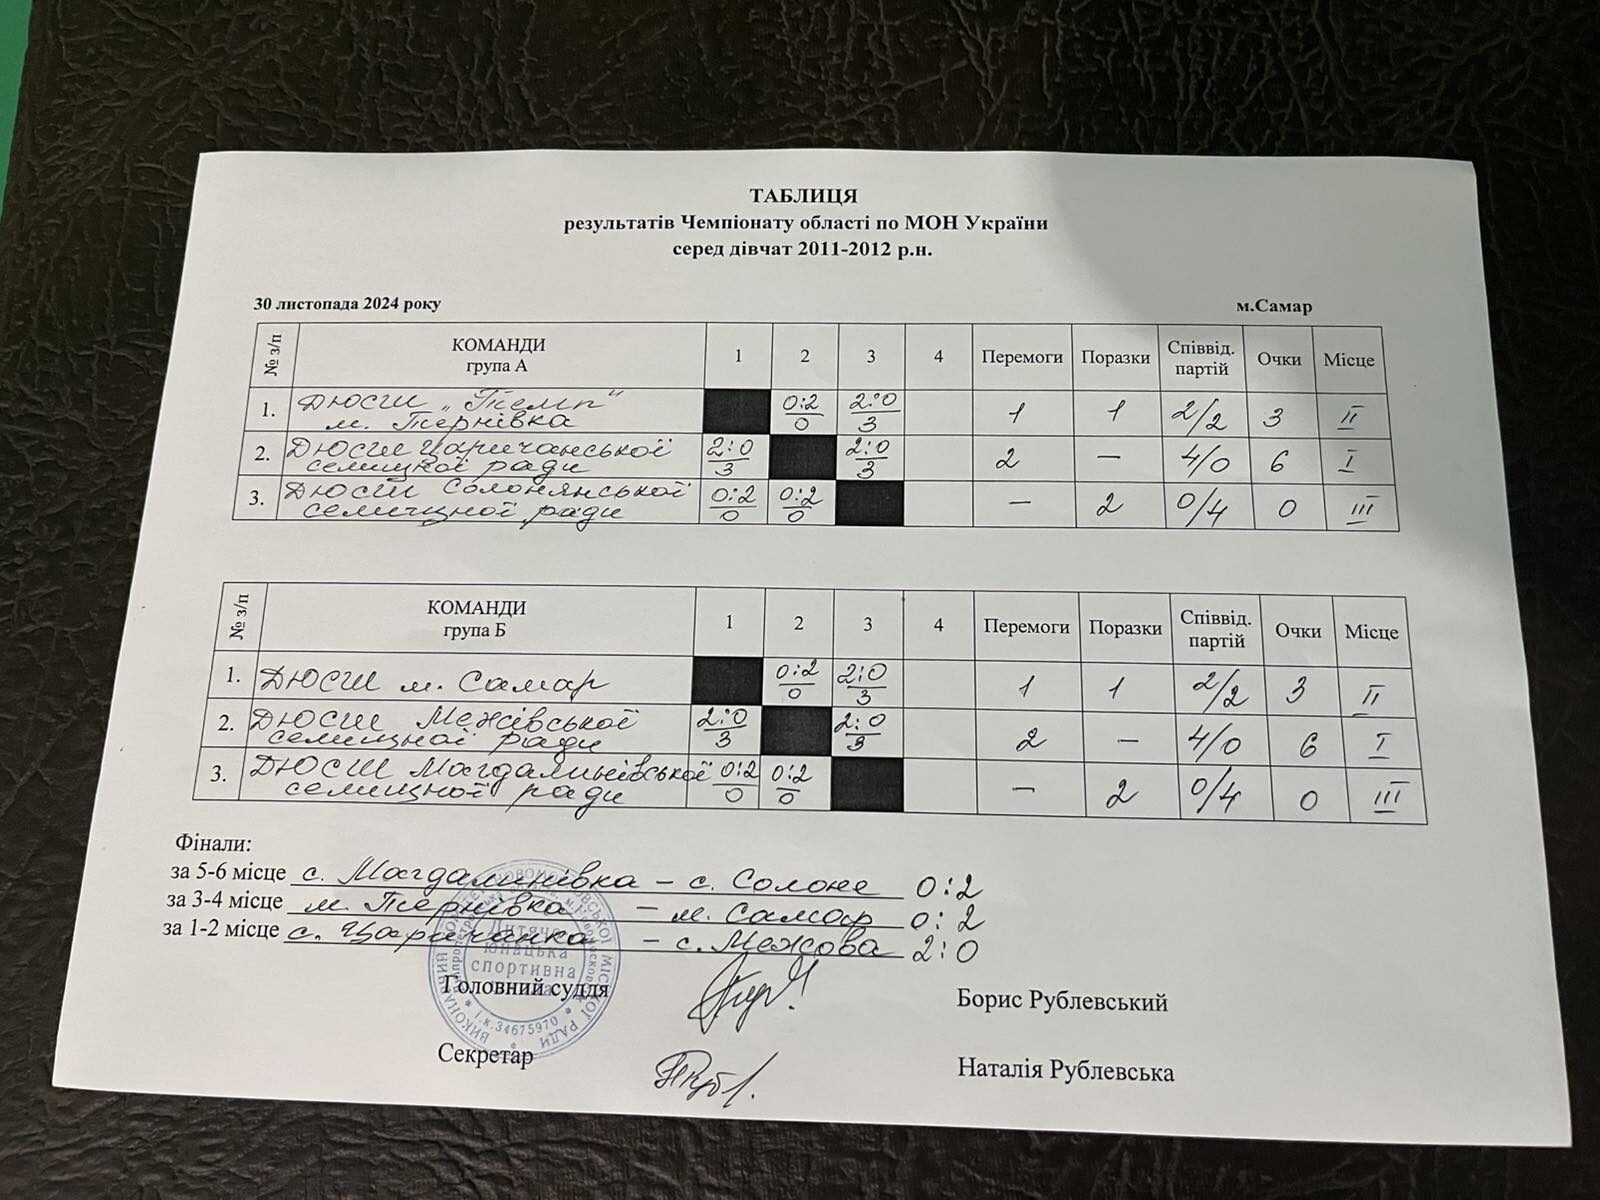 ТАБЛИЦЯ
результатів Чемпіонату області по МОН України
серед дівчат 2011-2012 р.н.
30 листопада 2024 року м.Самар
№ з/п КОМАНДИ група А 1 2 3 4 Перемоги Поразки Співвід. партій Очки Місце
1. ДЮСШ „Темп" м. Тернівка 0:2/0 2:0/3 1 1 2/2 3 II
2. ДЮСШ Царичанської селищної ради 2:0/3 2:0/3 2 — 4/0 6 I
3. ДЮСШ Солонянської селищної ради 0:2/0 0:2/0 — 2 0/4 0 III
№ з/п КОМАНДИ група Б 1 2 3 4 Перемоги Поразки Співвід. партій Очки Місце
1. ДЮСШ м. Самар 0:2/0 2:0/3 1 1 2/2 3 II
2. ДЮСШ Межівської селищної ради 2:0/3 2:0/3 2 — 4/0 6 I
3. ДЮСШ Магдалинівської селищної ради 0:2/0 0:2/0 — 2 0/4 0 III
Фінали:
за 5-6 місце с. Магдалинівка – с. Солоне 0:2
за 3-4 місце м. Тернівка – м. Самар 0:2
за 1-2 місце с. Царичанка – с. Межова 2:0
Дитячо
юнацька
спортивна
і.к.34675970
Головний суддя Борис Рублевський
Секретар Наталія Рублевська